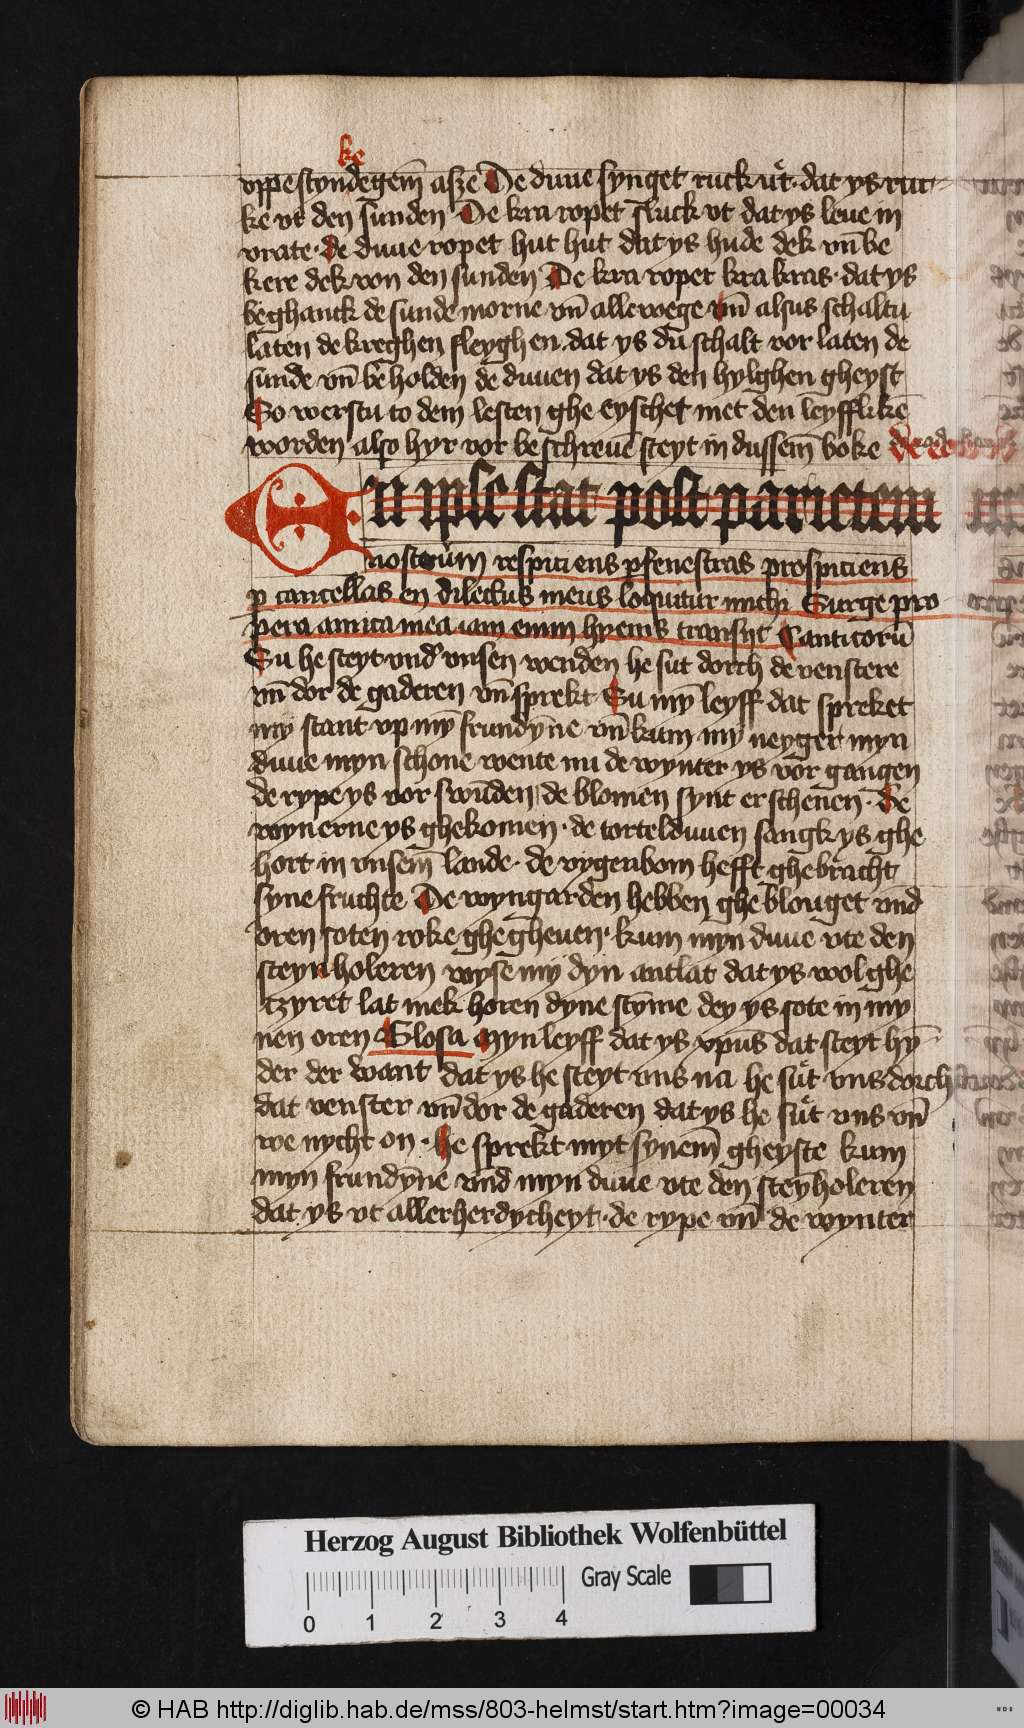 ke
vppe stondegem̄ asze De duue synget ruck uͤt · dat ys rur
ke vt den sunden De kra ropet fluck vt dat ys leue in
vrate · de duue ropet hut hut dat ys hude dek vn̄ be
kere dek von den sunden De kra ropet kra kras · dat ys
beghanck de sunde morne vn̄ alle wege vn̄ alsus schaltu
laten de kreghen fleyghen dat ys du schalt vor laten de
sunde vn̄ be holden de duuen dat ys den hylghen gheyst
So werstu to dem lesten ghe eyschet met den leyfflikē
worden also hyr vor be schreue steyt in dussem̄ boke
En ipse stat post parietem
nosterum respiciens ꝑ fenestras prospiciens
ꝑ cancellas en dilectus meus loquitur michi Surge pro
pera amica mea iam enim hyems transijt Canticorū
Su he steyt vnd' vnsen wenden he sut dorch de venstere
vn̄ dor de gaderen vn̄ sprekt Su mȳ leyff dat spreket
my stant vp mȳ frundȳne vn̄ kum my neyger myn
duue myn schone wente nu de wynter ys vor gangen
de rype ys vor swūden de blomen synt er schenen · de
wynerne ys ghekomen · de tortelduuen sangk ys ghe
hort in vnsem̄ lande · de vygenbom hefft ghebracht
syne fruchte De wyngarden hebben ghe blouget vnd
oren soten roke ghegheuen · kum myn duue vte den
steynholeren wyse my dyn antlat dat ys wol ghe
tzyret lat mek horen dyne stȳme dey ys sote in my
nen oren Glosa Myn leyff dat ys xpūs dat steyt hȳ
der der want dat ys he steyt vns na he suͤt vns dorch
dat venster vn̄ dor de gaderen dat ys he suͤt vns vn̄
we nycht on · he sprekt myt synem̄ gheyste kum
myn frundȳne vnd myn duue vte den steyholeren
dat ys vt allerherdycheyt · de rype vn̄ de wynter
Herzog August Bibliothek Wolfenbüttel
Gray Scale
0 1 2 3 4
© HAB http://diglib.hab.de/mss/803-helmst/start.htm?image=00034